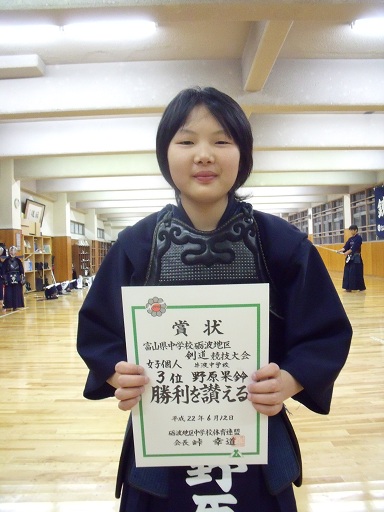 賞状
富山県中学校砺波地区
剣道競技大会
女子個人 井波中学校
3位 野原果鈴
勝利を讃える
平成22年6月12日
砺波地区中学校体育連盟
会長 峠 幸道
野原